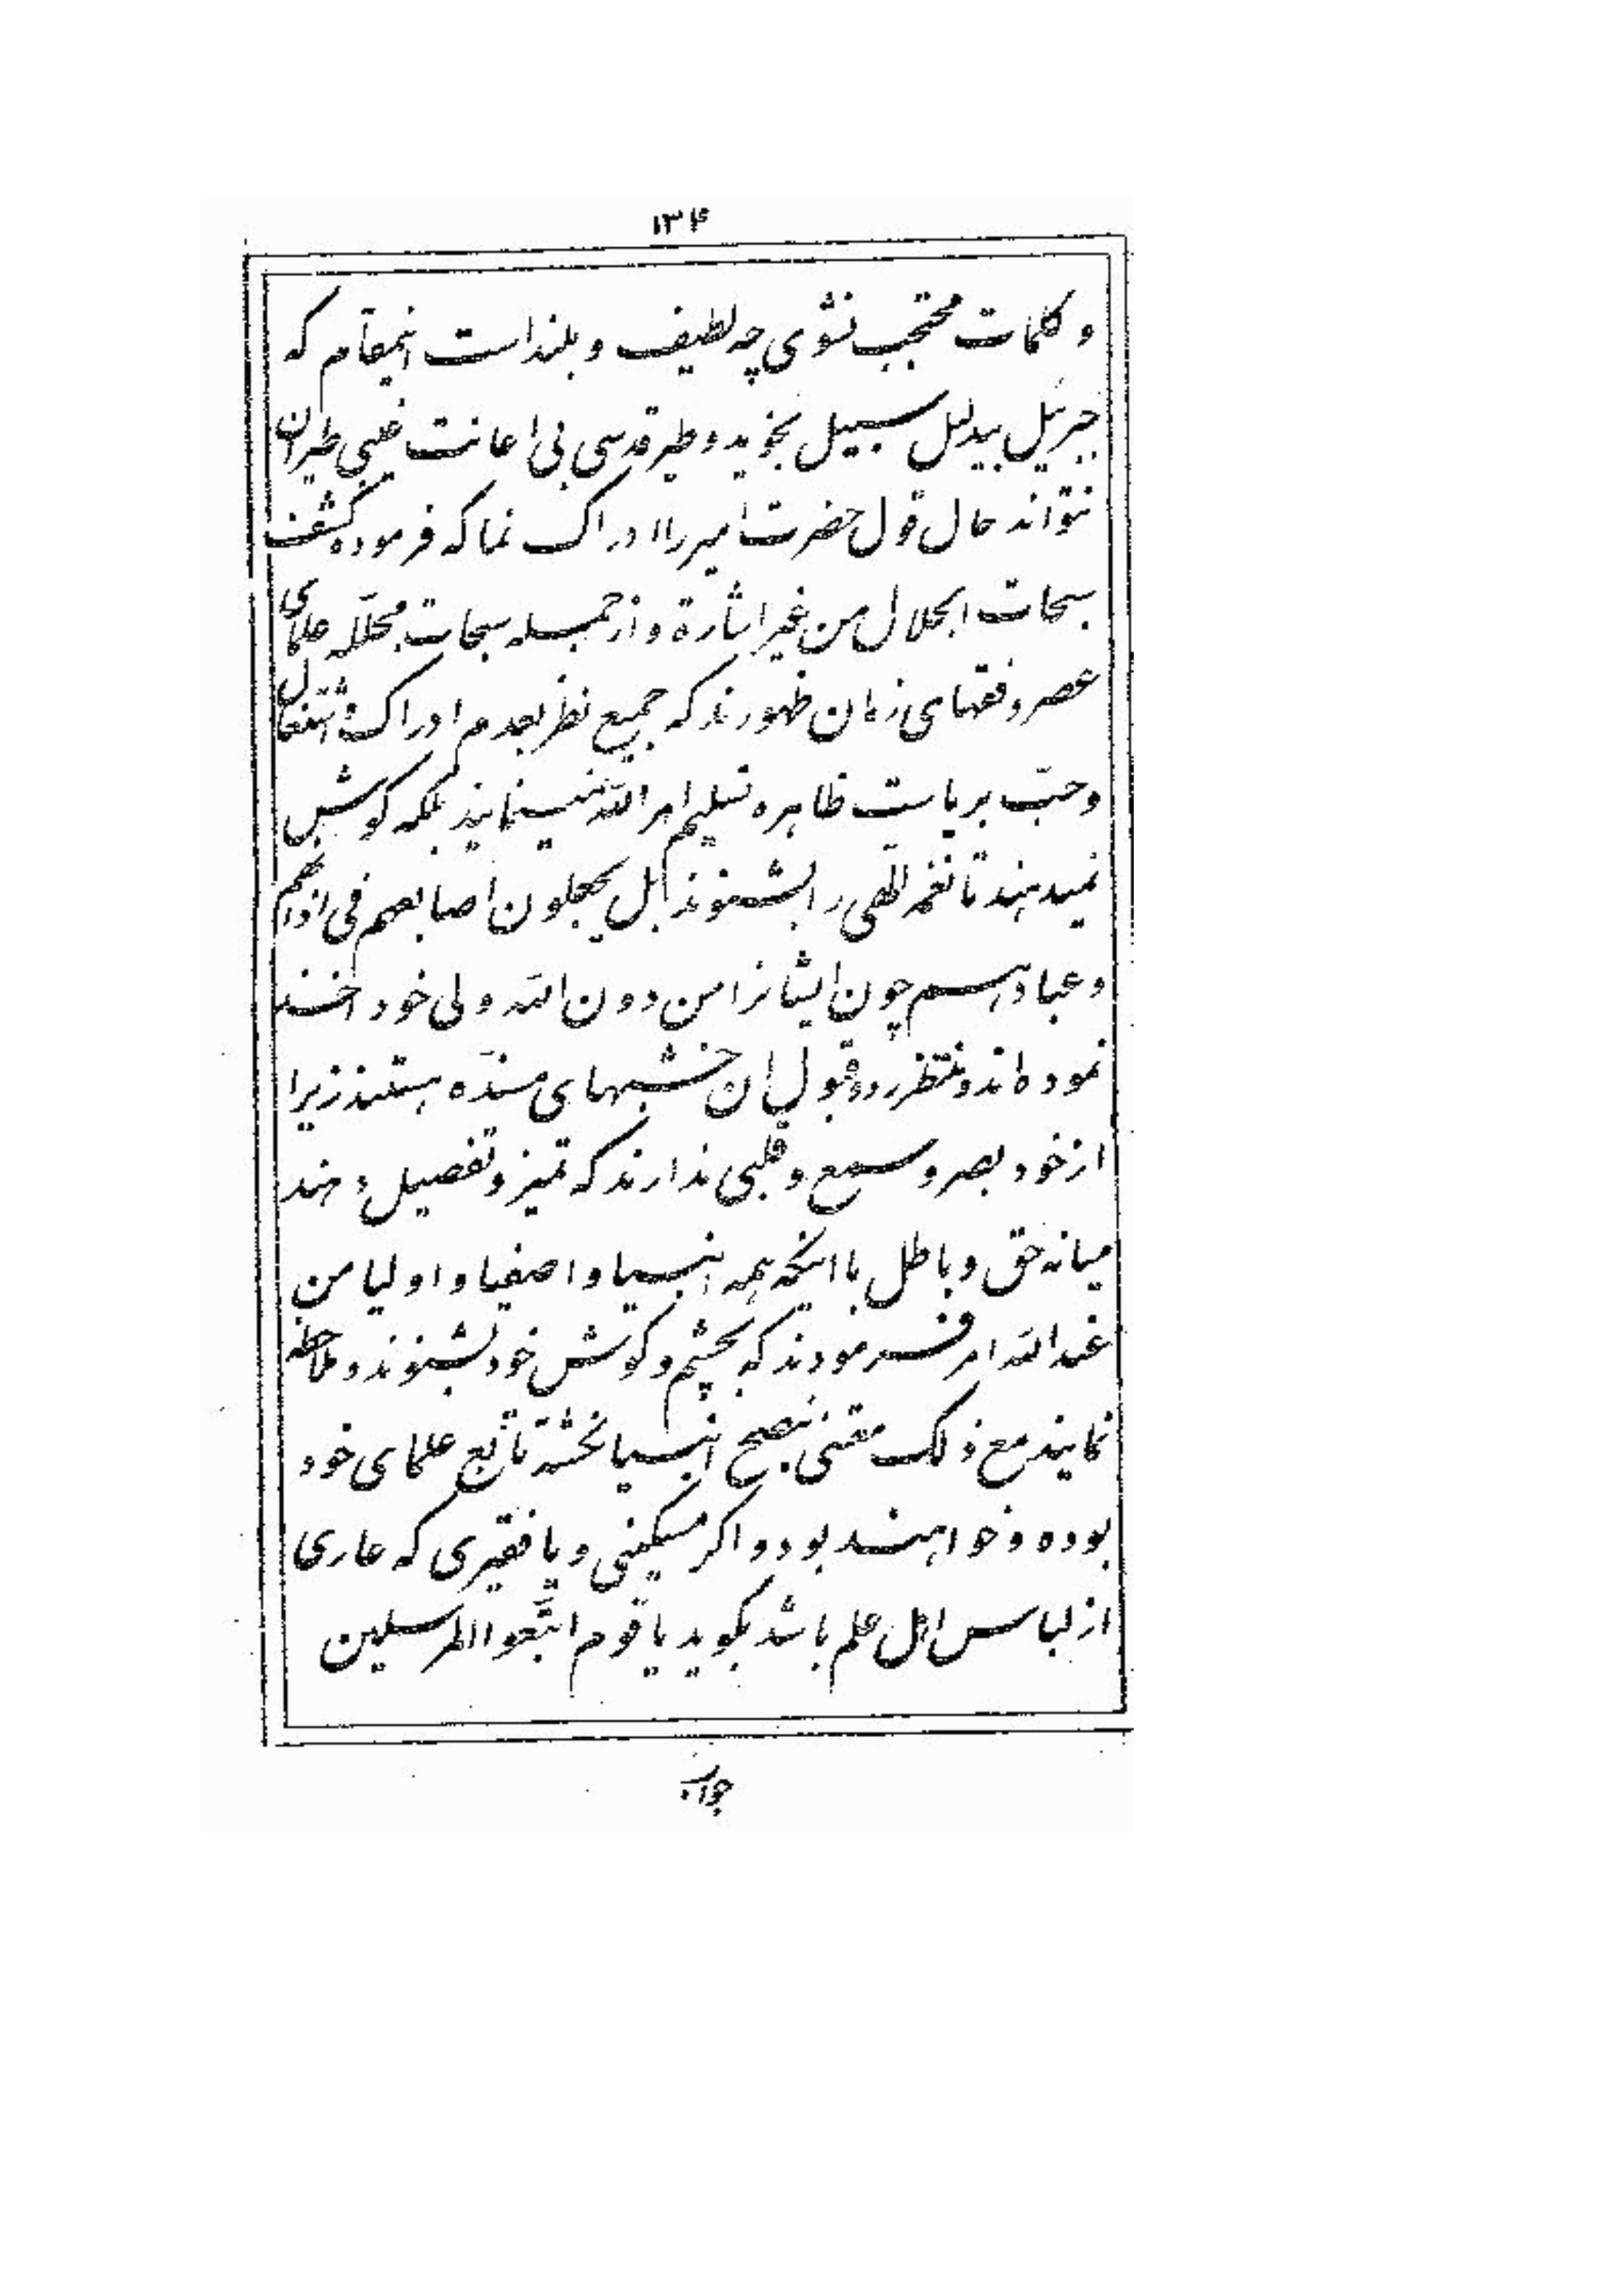 ۱۳۴
و کلمات محتجب نشوی چه لطیف و بلند است اینمقام که
جبرئیل بیدلیل سبیل نجوید و طیر قدسی بی اعانت غیبی طیران
نتواند حال قول حضرت امیر را ادراک نما که فرموده کشف
سبحات الجلال من غیر اشارة و از جمله سبحات مجلّله علمای
عصر و فقهای زمان ظهورند که جمیع نظر بعدم ادراک و اشتغال
و حبّ بریاست ظاهره تسلیم امر الله نمینمایند بلکه کوش
نمیدهند تا نغمه الهی را بشنوند بل یجعلون اصابعهم فی اذانهم
و عباد هم چون ایشانرا من دون الله ولی خود اخذ
نموده‌اند و منتظر رد و قبول ان خشبهای مسنّده هستند زیرا
از خود بصر و سمع و قلبی ندارند که تمیز و تفصیل دهند
میانه حق و باطل با اینکه همه انبیا و اصفیا و اولیا من
عند الله امر فرمودند که بچشم و کوش خود بشنوند و ملاحظه
نمایند مع ذلک معتنی بنصح انبیا نکشته تابع علمای خود
بوده و خواهند بود و اکر مسکینی و یا فقیری که عاری
از لباس اهل علم باشد بکوید یا قوم اتّبعوا المرسلین
جواب